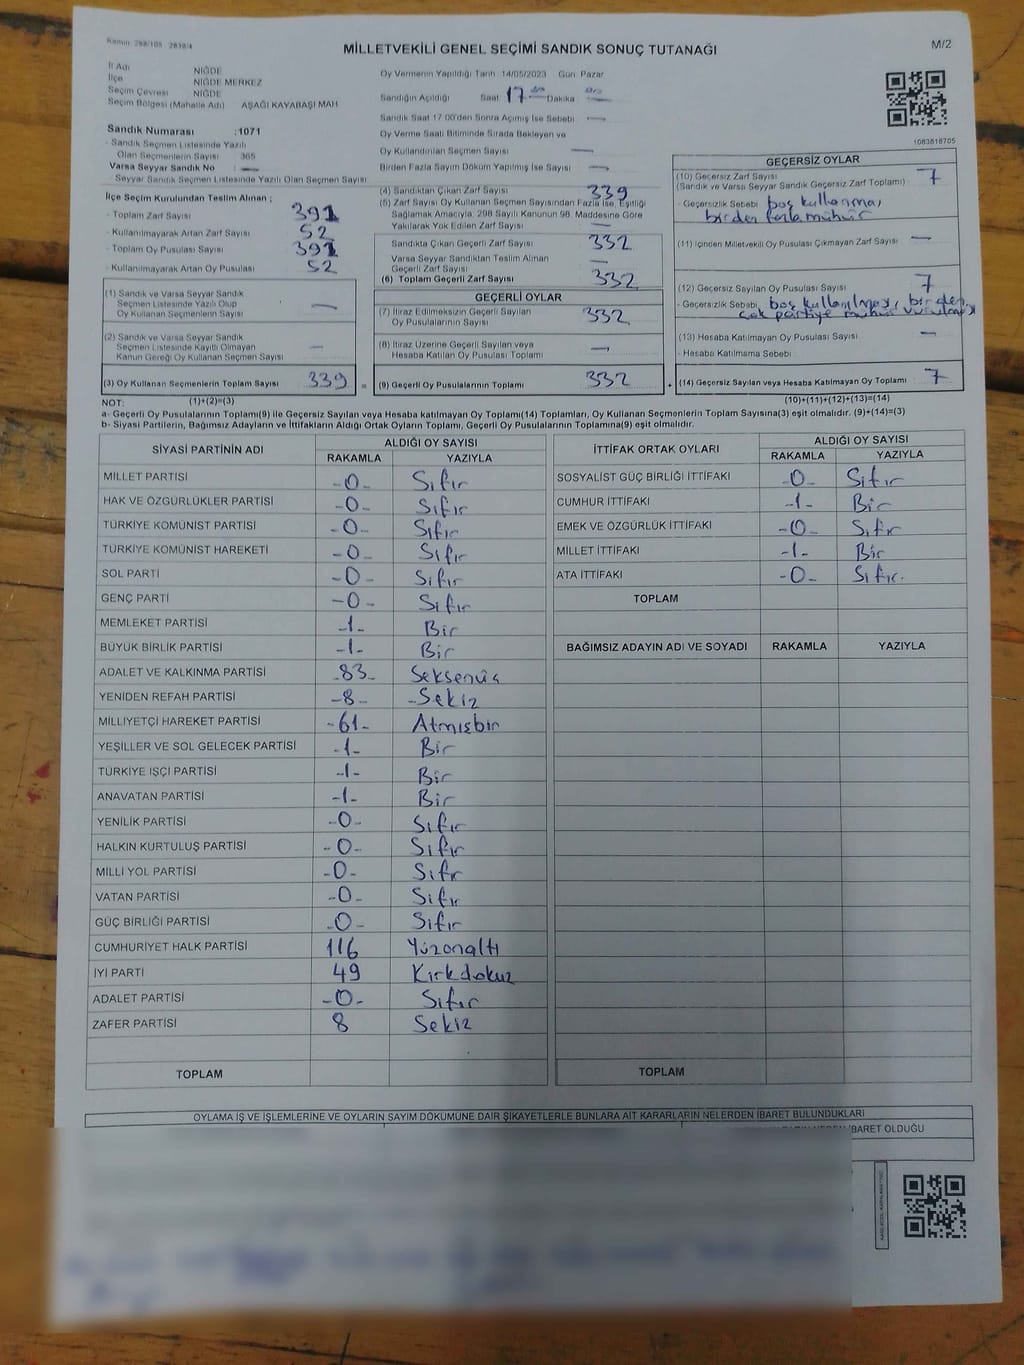 Kanun: 298/105 2839/4
MİLLETVEKİLİ GENEL SEÇİMİ SANDIK SONUÇ TUTANAĞI
M/2
İl Adı NİĞDE
İlçe NİĞDE MERKEZ
Seçim Çevresi NİĞDE
Seçim Bölgesi (Mahalle Adı) AŞAĞI KAYABAŞI MAH
Sandık Numarası :1071
- Sandık Seçmen Listesinde Yazılı
Olan Seçmenlerin Sayısı 365
Varsa Seyyar Sandık No —
- Seyyar Sandık Seçmen Listesinde Yazılı Olan Seçmen Sayısı
İlçe Seçim Kurulundan Teslim Alınan ;
- Toplam Zarf Sayısı 391
- Kullanılmayarak Artan Zarf Sayısı 52
- Toplam Oy Pusulası Sayısı 391
- Kullanılmayarak Artan Oy Pusulası 52
(1) Sandık ve Varsa Seyyar Sandık
Seçmen Listesinde Yazılı Olup
Oy Kullanan Seçmenlerin Sayısı —
(2) Sandık ve Varsa Seyyar Sandık
Seçmen Listesinde Kayıtlı Olmayan
Kanun Gereği Oy Kullanan Seçmen Sayısı —
(3) Oy Kullanan Seçmenlerin Toplam Sayısı 339 =
Oy Vermenin Yapıldığı Tarih 14/05/2023 Gün Pazar
Sandığın Açıldığı Saat 17 Dakika
Sandık Saat 17 00'den Sonra Açılmış İse Sebebi —
Oy Verme Saati Bitiminde Sırada Bekleyen ve
Oy Kullandırılan Seçmen Sayısı —
Birden Fazla Sayım Döküm Yapılmış İse Sayısı —
(4) Sandıktan Çıkan Zarf Sayısı 339
(5) Zarf Sayısı Oy Kullanan Seçmen Sayısından Fazla İse, Eşitliği
Sağlamak Amacıyla, 298 Sayılı Kanunun 98. Maddesine Göre
Yakılarak Yok Edilen Zarf Sayısı —
Sandıkta Çıkan Geçerli Zarf Sayısı 332
Varsa Seyyar Sandıktan Teslim Alınan
Geçerli Zarf Sayısı —
(6) Toplam Geçerli Zarf Sayısı 332
GEÇERLİ OYLAR
(7) İtiraz Edilmeksizin Geçerli Sayılan
Oy Pusulalarının Sayısı 332
(8) İtiraz Üzerine Geçerli Sayılan veya
Hesaba Katılan Oy Pusulası Toplamı —
(9) Geçerli Oy Pusulalarının Toplamı 332 +
1083818705
GEÇERSİZ OYLAR
(10) Geçersiz Zarf Sayısı 7
(Sandık ve Varsa Seyyar Sandık Geçersiz Zarf Toplamı)
- Geçersizlik Sebebi boş kullanma,
birden fazla mühür
(11) İçinden Milletvekili Oy Pusulası Çıkmayan Zarf Sayısı —
(12) Geçersiz Sayılan Oy Pusulası Sayısı 7
- Geçersizlik Sebebi boş kullanılması, birden
çok partiye mühür vurulması
(13) Hesaba Katılmayan Oy Pusulası Sayısı —
- Hesaba Katılmama Sebebi
(14) Geçersiz Sayılan veya Hesaba Katılmayan Oy Toplamı 7
NOT: (1)+(2)=(3) (10)+(11)+(12)+(13)=(14)
a- Geçerli Oy Pusulalarının Toplamı(9) ile Geçersiz Sayılan veya Hesaba katılmayan Oy Toplamı(14) Toplamları, Oy Kullanan Seçmenlerin Toplam Sayısına(3) eşit olmalıdır. (9)+(14)=(3)
b- Siyasi Partilerin, Bağımsız Adayların ve İttifakların Aldığı Ortak Oyların Toplamı, Geçerli Oy Pusulalarının Toplamına(9) eşit olmalıdır.
SİYASİ PARTİNİN ADI ALDIĞI OY SAYISI
RAKAMLA YAZIYLA
MİLLET PARTİSİ -0- Sıfır
HAK VE ÖZGÜRLÜKLER PARTİSİ -0- Sıfır
TÜRKİYE KOMÜNİST PARTİSİ -0- Sıfır
TÜRKİYE KOMÜNİST HAREKETİ -0- Sıfır
SOL PARTİ -0- Sıfır
GENÇ PARTİ -0- Sıfır
MEMLEKET PARTİSİ -1- Bir
BÜYÜK BİRLİK PARTİSİ -1- Bir
ADALET VE KALKINMA PARTİSİ -83- Seksenüç
YENİDEN REFAH PARTİSİ -8- -Sekiz
MİLLİYETÇİ HAREKET PARTİSİ -61- Atmışbir
YEŞİLLER VE SOL GELECEK PARTİSİ -1- Bir
TÜRKİYE İŞÇİ PARTİSİ -1- Bir
ANAVATAN PARTİSİ -1- Bir
YENİLİK PARTİSİ -0- Sıfır
HALKIN KURTULUŞ PARTİSİ -0- Sıfır
MİLLİ YOL PARTİSİ -0- Sıfır
VATAN PARTİSİ -0- Sıfır
GÜÇ BİRLİĞİ PARTİSİ -0- Sıfır
CUMHURİYET HALK PARTİSİ 116 Yüzonaltı
İYİ PARTİ 49 Kırkdokuz
ADALET PARTİSİ -0- Sıfır
ZAFER PARTİSİ 8 Sekiz
TOPLAM
İTTİFAK ORTAK OYLARI ALDIĞI OY SAYISI
RAKAMLA YAZIYLA
SOSYALİST GÜÇ BİRLİĞİ İTTİFAKI -0- Sıfır
CUMHUR İTTİFAKI -1- Bir
EMEK VE ÖZGÜRLÜK İTTİFAKI -0- Sıfır
MİLLET İTTİFAKI -1- Bir
ATA İTTİFAKI -0- Sıfır.
TOPLAM
BAĞIMSIZ ADAYIN ADI VE SOYADI RAKAMLA YAZIYLA
TOPLAM
OYLAMA İŞ VE İŞLEMLERİNE VE OYLARIN SAYIM DÖKÜMÜNE DAİR ŞİKAYETLERLE BUNLARA AİT KARARLARIN NELERDEN İBARET BULUNDUKLARI
İBARET OLDUĞU